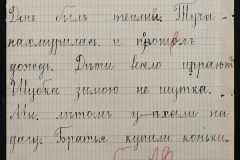 День былъ теплый. Туча
нахмурилась и прошелъ
дождь. Дѣти весело играютъ
Шубка зимою не шутка.
Мы лѣтомъ уѣхали на
дачу. Братья купили коньки.